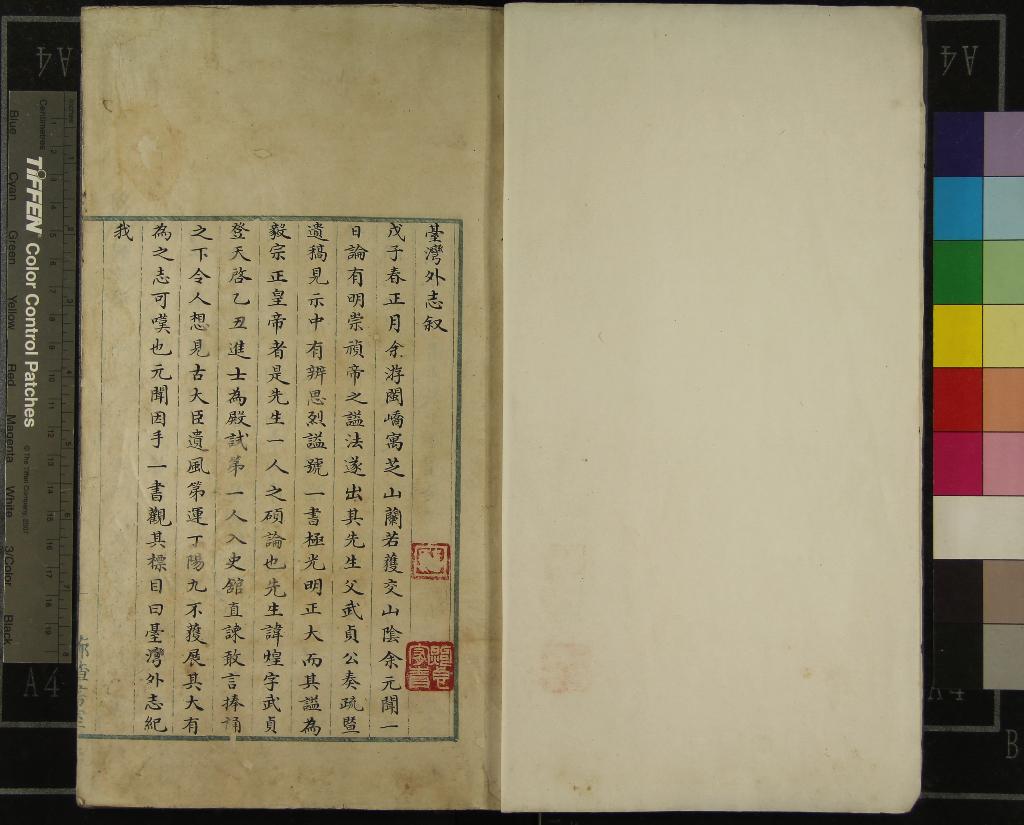 臺灣外志叙
戊子春正月余游閩嶠寓芝山蘭若獲交山陰余元聞一
日論有明崇禎帝之謚法遂出其先生父武貞公奏疏暨
遺稿見示中有辨思烈謚號一書極光明正大而其謚為
毅宗正皇帝者是先生一人之碩論也先生諱煌字武貞
登天啓乙丑進士為殿試第一人入史館直諫敢言捧誦
之下令人想見古大臣遺風第運丁陽九不獲展其大有
為之志可嘆也元聞因手一書觀其標目曰臺灣外志紀
我
TIFFEN Color Control Patches
© The Tiffen Company, 2007
Centimetres
Inches
Blue
Cyan
Green
Yellow
Red
Magenta
White
3/Color
Black
A4
A4
A4
A4
B